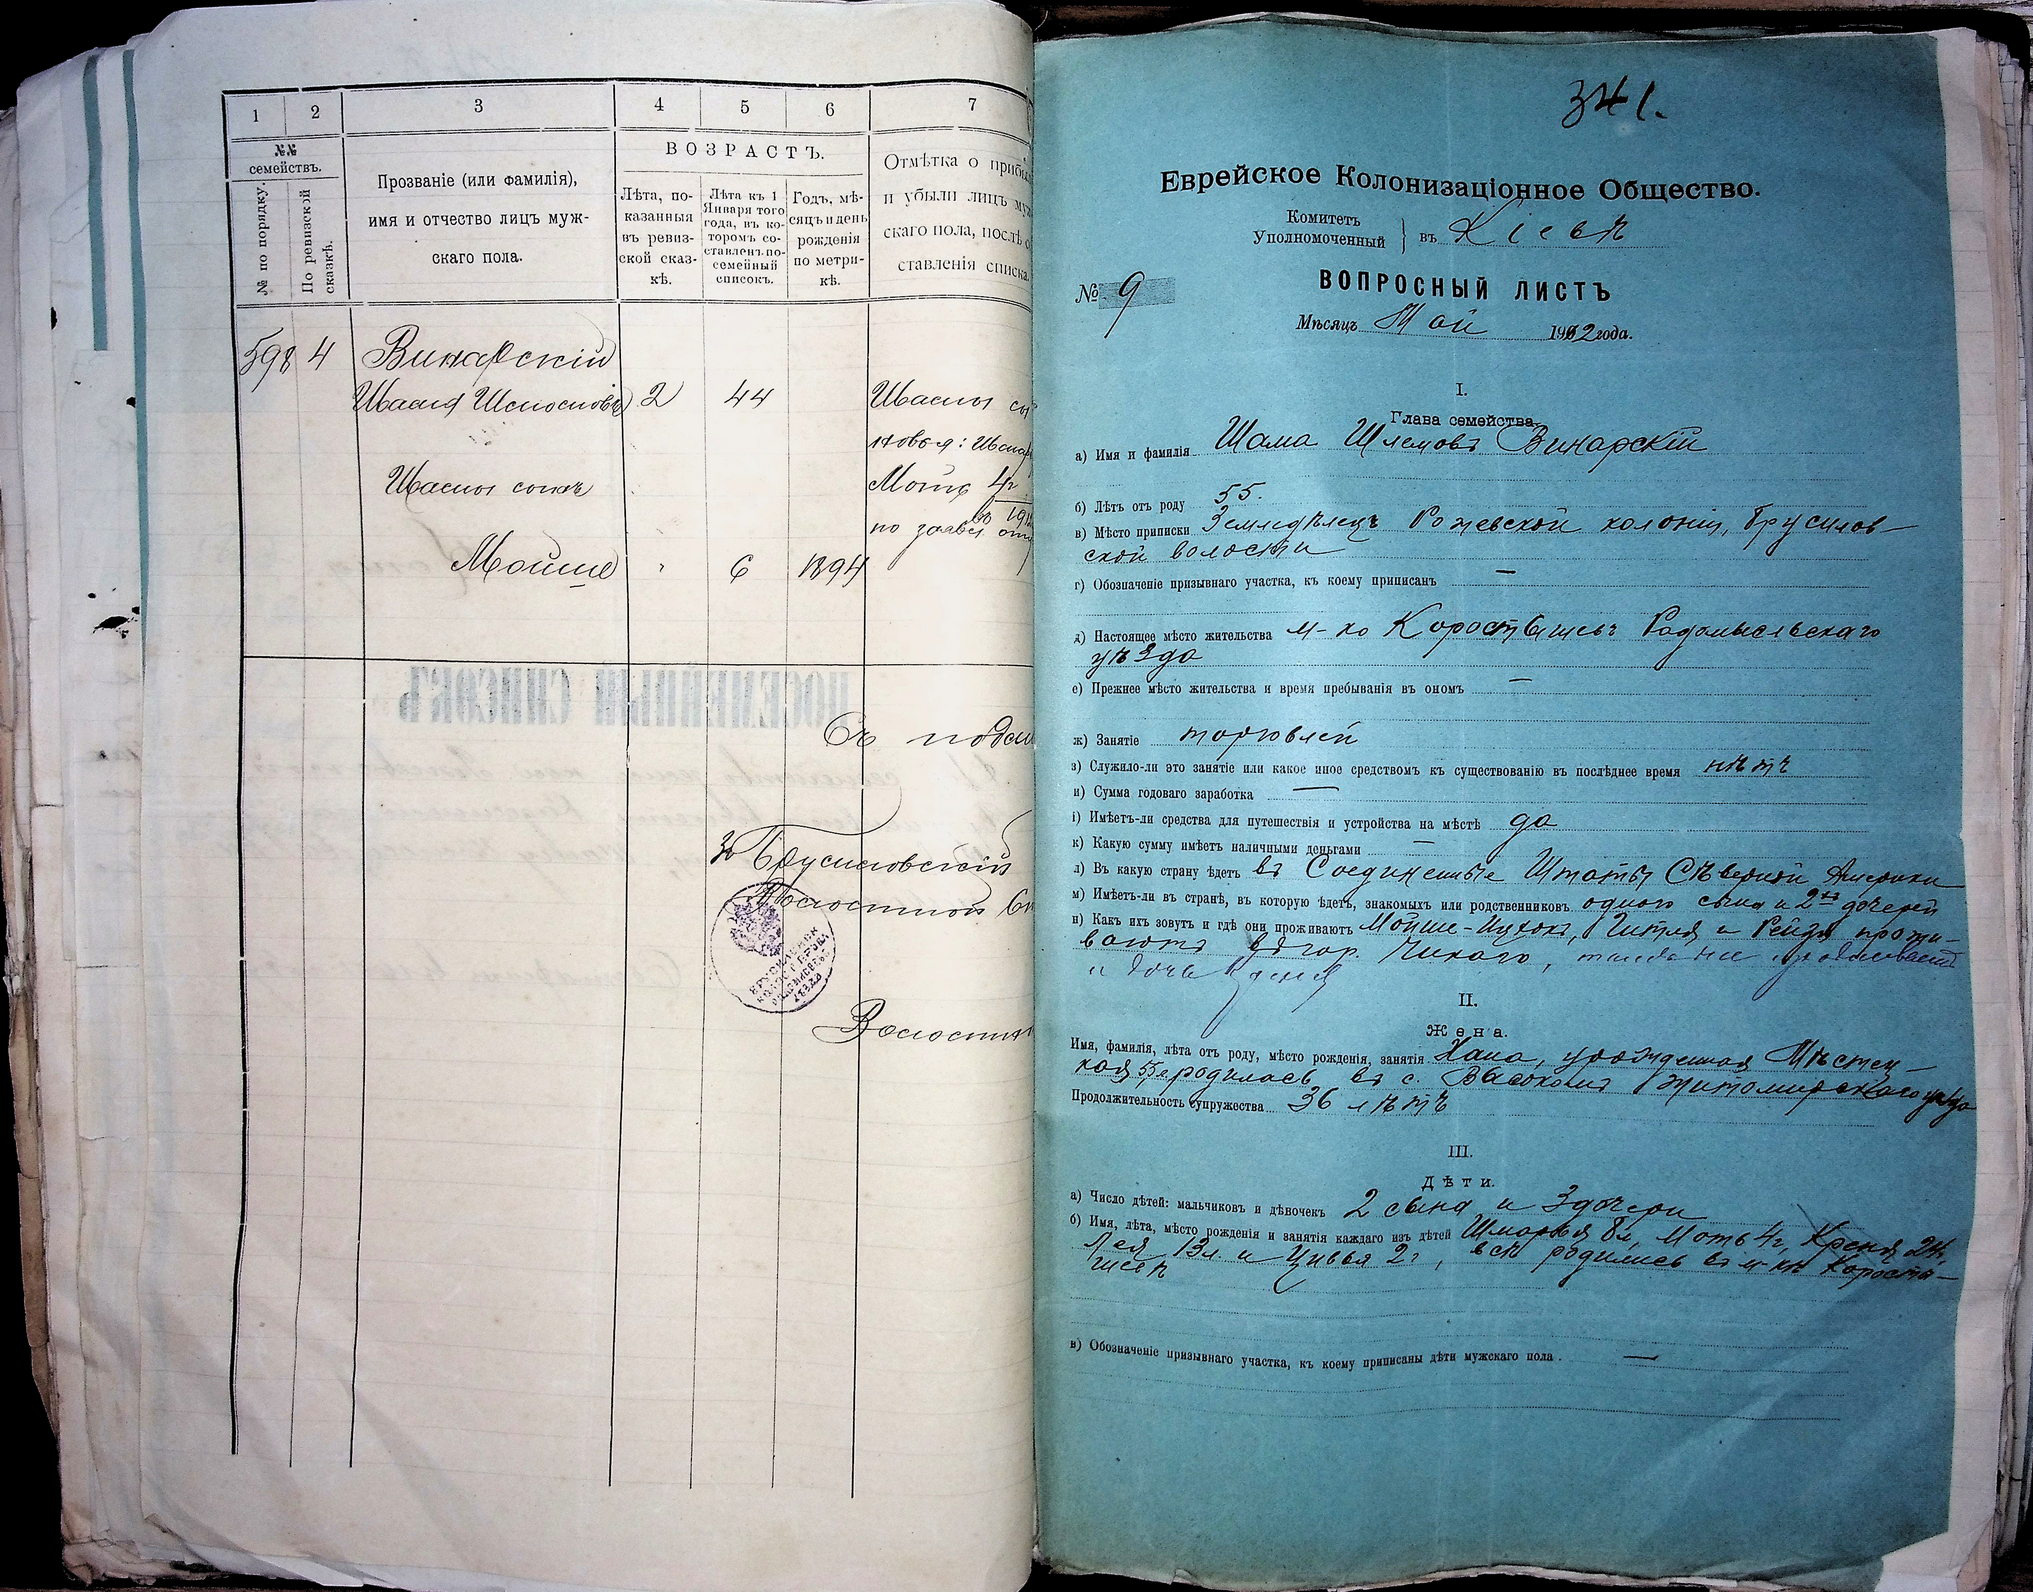 1 2 3 4 5 6 7
№№ семействъ.
№ по порядку.
По ревизской сказкѣ.
Прозваніе (или фамилія),
имя и отчество лицъ муж-
скаго пола.
ВОЗРАСТЪ.
Лѣта, по-
казанныя
въ ревиз-
ской сказ-
кѣ.
Лѣта къ 1
Января того
года, въ ко-
торомъ со-
ставленъ по-
семейный
списокъ.
Годъ, мѣ-
сяцъ и день
рожденія
по метри-
кѣ.
Отмѣтка о прибы
и убыли лицъ му
скаго пола, послѣ
ставленія списка
598 4 Винарскій
2 44
сынъ
по заявл
Мойше 6 1894
ПОСЕМЕЙНЫЙ СПИСОКЪ
Съ подли
Брусиловскій
Волостной
Волостн
341.
Еврейское Колонизаціонное Общество.
Комитетъ
Уполномоченный } въ Кіевѣ
ВОПРОСНЫЙ ЛИСТЪ
№ 9
Мѣсяцъ Май 1912 года.
I.
Глава семейства.
а) Имя и фамилія Шама Шлемовъ Винарскій
б) Лѣтъ отъ роду 55.
в) Мѣсто приписки Земледѣлецъ Рожевской колоніи, Брусилов-
ской волости
г) Обозначеніе призывнаго участка, къ коему приписанъ —
д) Настоящее мѣсто жительства м-ко Коростышевъ Радомысльскаго
уѣзда
е) Прежнее мѣсто жительства и время пребыванія въ ономъ —
ж) Занятіе торговлей
з) Служило-ли это занятіе или какое иное средствомъ къ существованію въ послѣднее время нѣтъ
и) Сумма годоваго заработка —
і) Имѣетъ-ли средства для путешествія и устройства на мѣстѣ да
к) Какую сумму имѣетъ наличными деньгами —
л) Въ какую страну ѣдетъ въ Соединенные Штаты Сѣверной Америки
м) Имѣетъ-ли въ странѣ, въ которую ѣдетъ, знакомыхъ или родственниковъ одного сына и 2хъ дочерей
н) Какъ ихъ зовутъ и гдѣ они проживаютъ Мойше-Ицхокъ, Гитля и Рейзя прожи-
ваютъ въ гор. Чикаго,
и дочь
II.
Жена.
Имя, фамилія, лѣта отъ роду, мѣсто рожденія, занятія Хана, урожденная Мѣстец-
кая, родилась въ с. Высокомъ Житомирскаго уѣзда
Продолжительность супружества 36 лѣтъ
III.
Дѣти.
а) Число дѣтей: мальчиковъ и дѣвочекъ 2 сына и 3 дочери
б) Имя, лѣта, мѣсто рожденія и занятія каждаго изъ дѣтей Шмарья 8 л, Моть 4 г,
Лея 13 л. и Цивья 2 г, всѣ родились въ м-кѣ Коросты-
шевѣ
в) Обозначеніе призывнаго участка, къ коему приписаны дѣти мужскаго пола. —